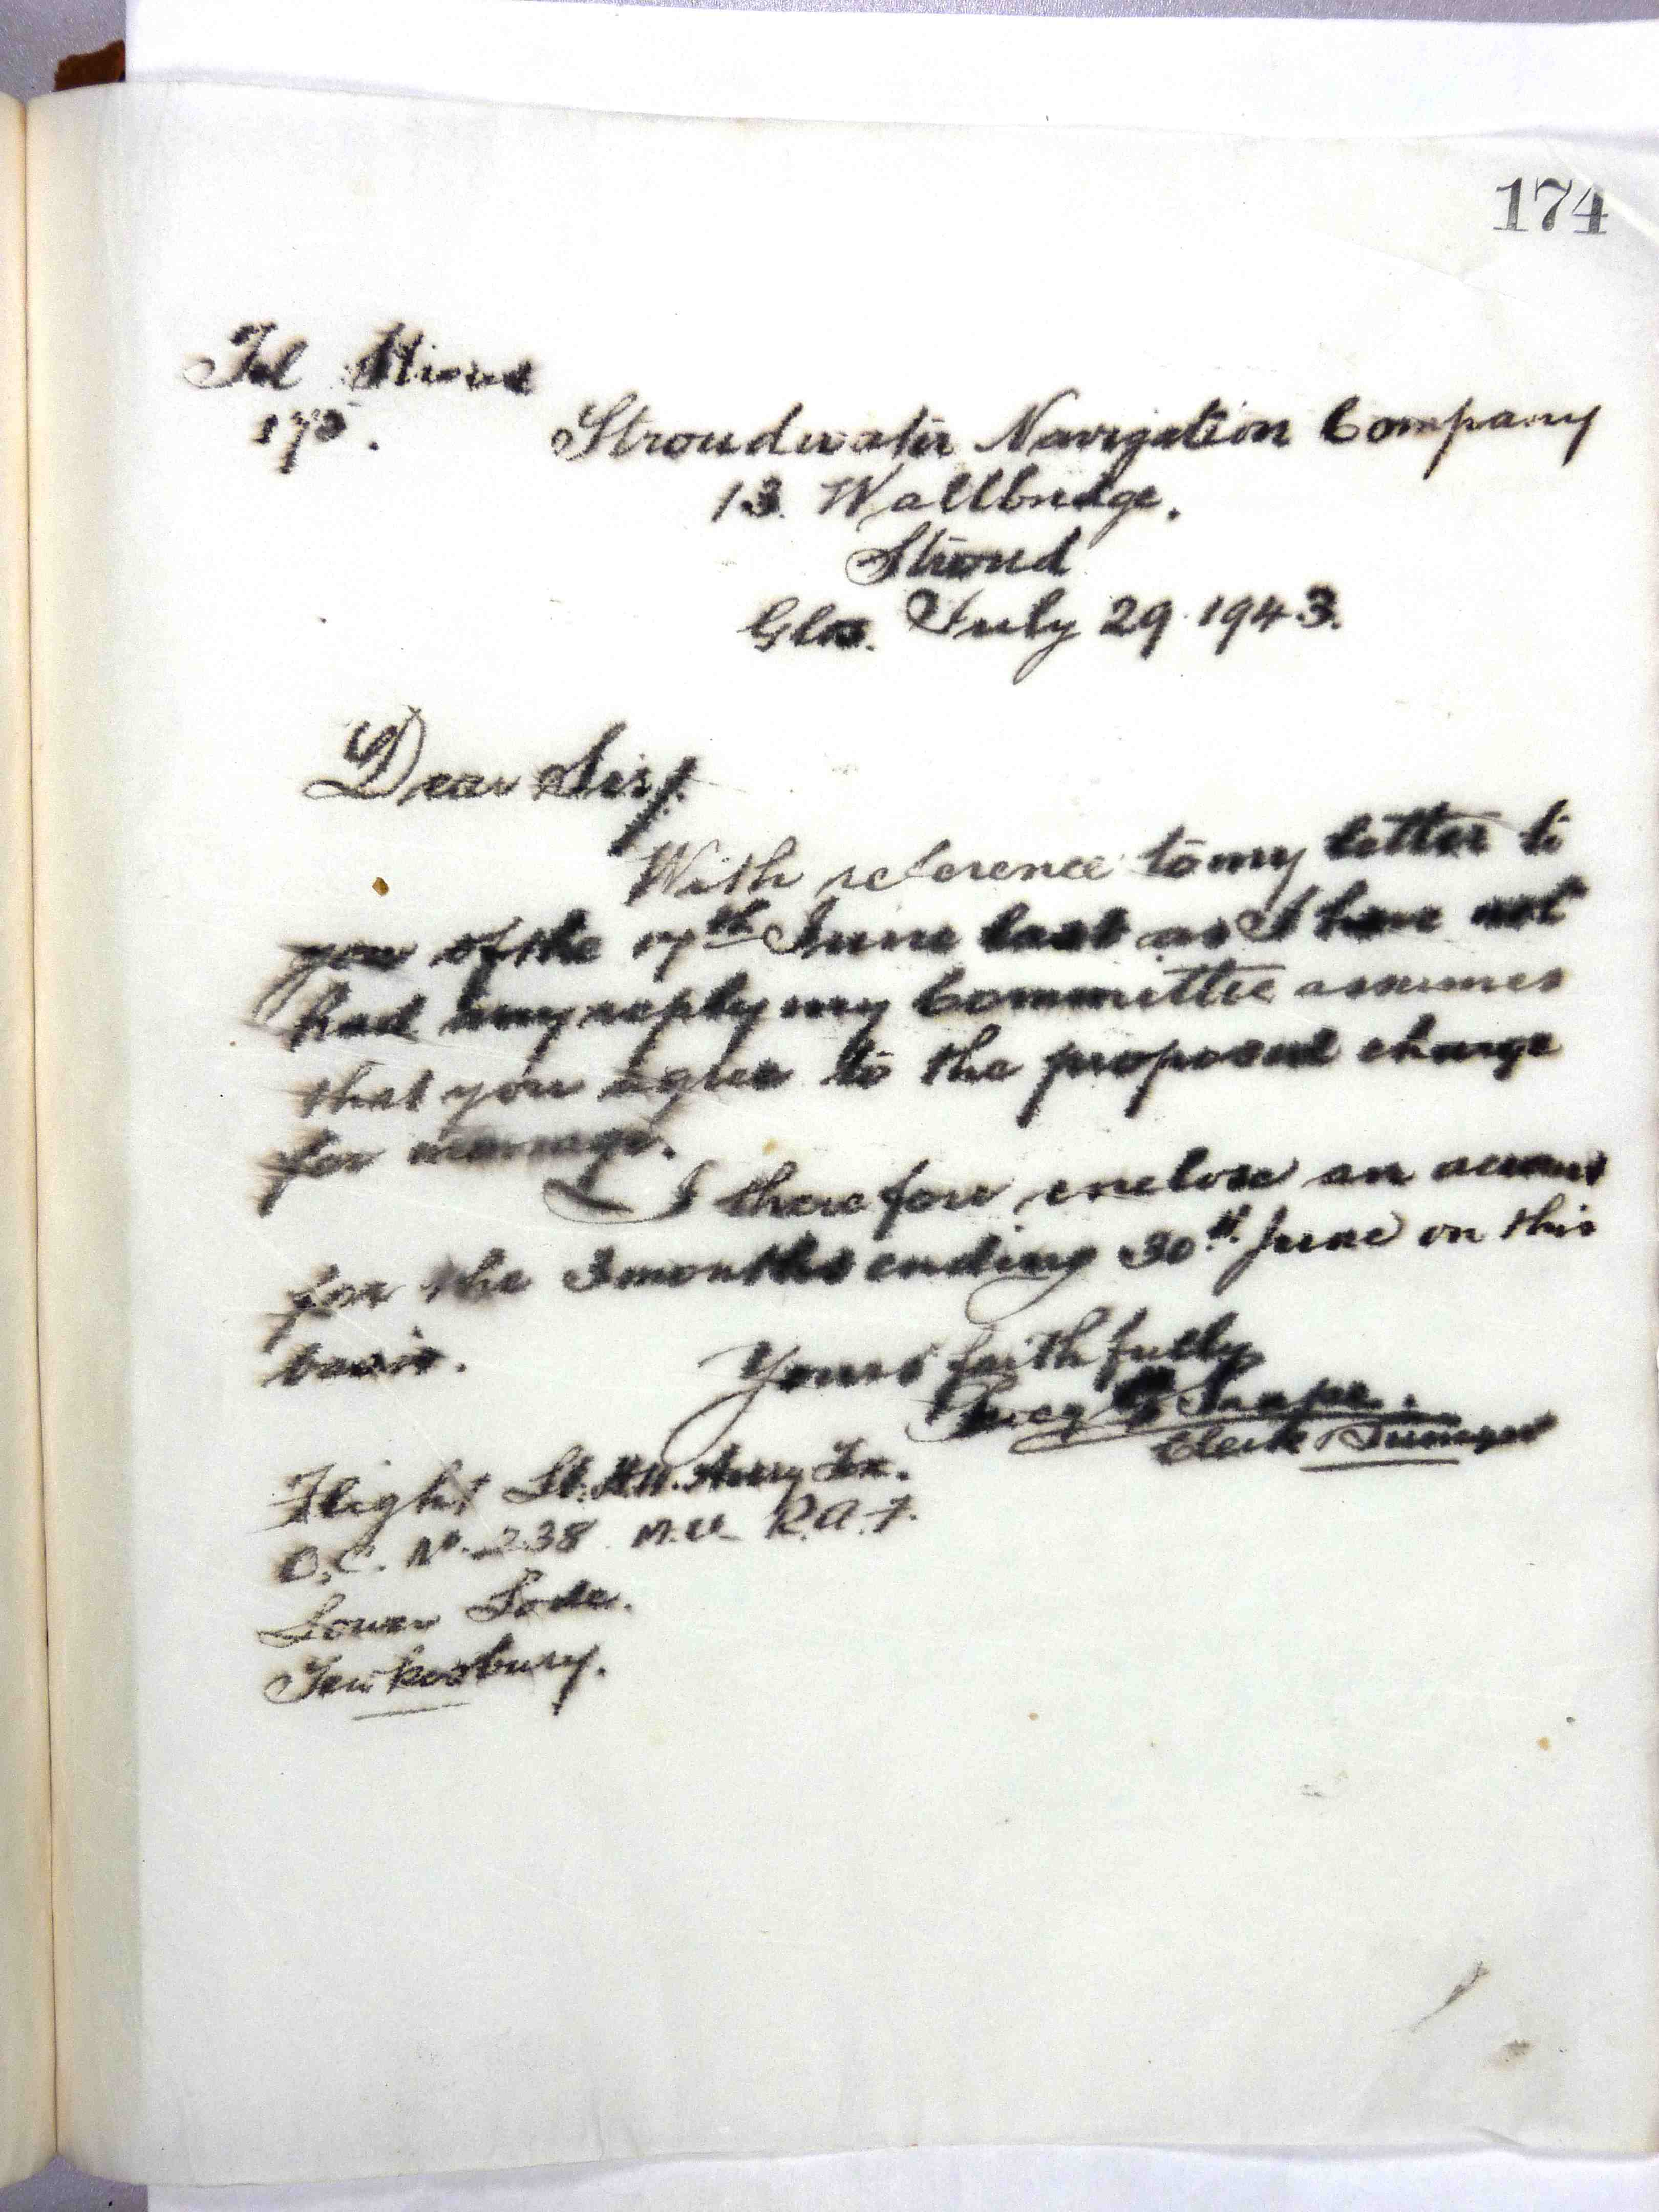 174
Tel Stroud
175.
Stroudwater Navigation Company
13. Wallbridge.
Stroud
Glos. July 29 1943.
Dear Sir,
With reference to my letter to
you of the 17th June last as I have not
had any reply my Committee assumes
that you agree to the proposed charge
for moorage.
I therefore enclose an account
for the 3 months ending 30th June on this
basis.
Yours faithfully
Snape.
Clerk
Flight Lt.
O.C. No. 238 M.U. R.A.F.
Lower Lode.
Tewkesbury.